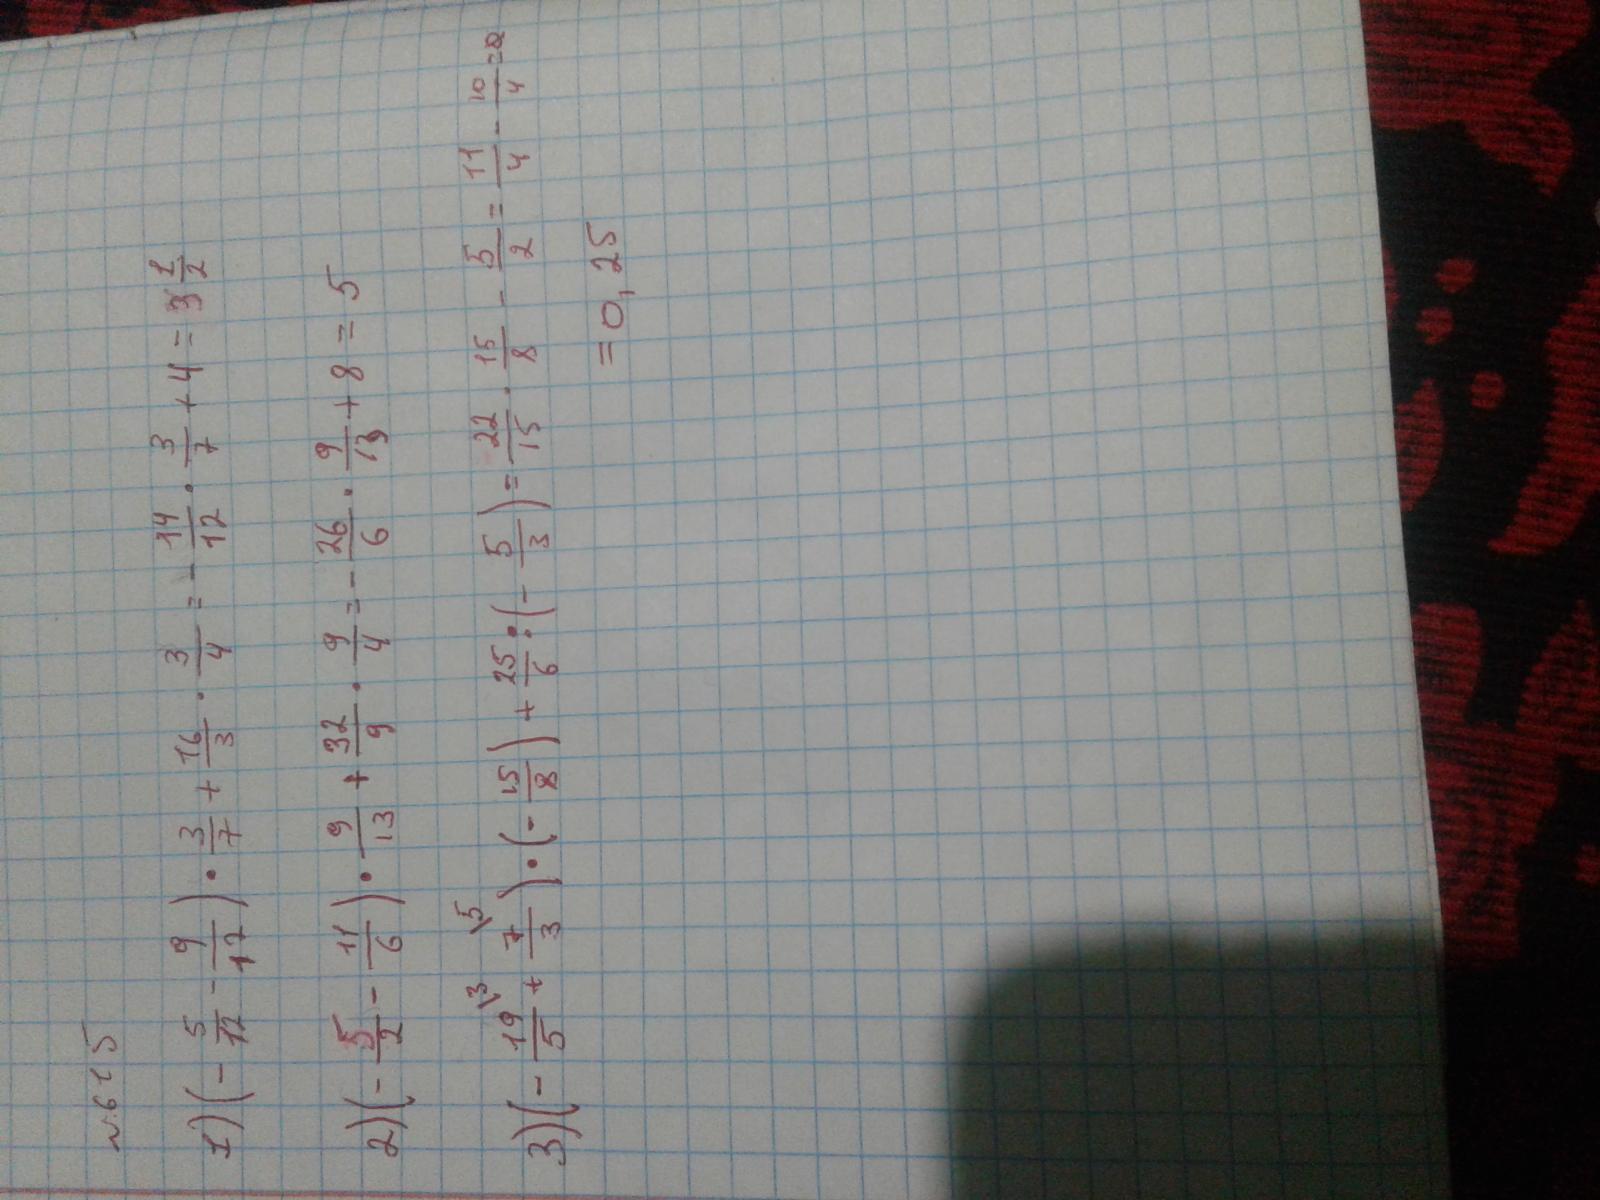 №615
1) (- 5/12 - 9/12) · 3/7 + 16/3 · 3/4 = - 14/12 · 3/7 + 4 = 3 1/2
2) (- 5/2 - 11/6) · 9/13 + 32/9 · 9/4 = - 26/6 · 9/13 + 8 = 5
3) (- 19/5 \3 + 7/3 \5) · (- 15/8) + 25/6 : (- 5/3) = 22/15 · 15/8 - 5/2 = 11/4 - 10/4 =
= 0,25